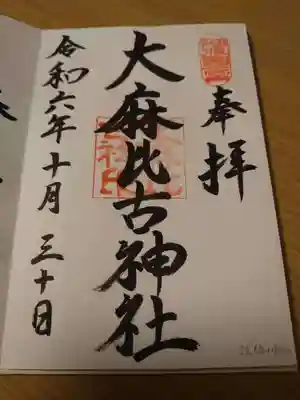 奉拝
大麻比古神社
令和六年十月三十日